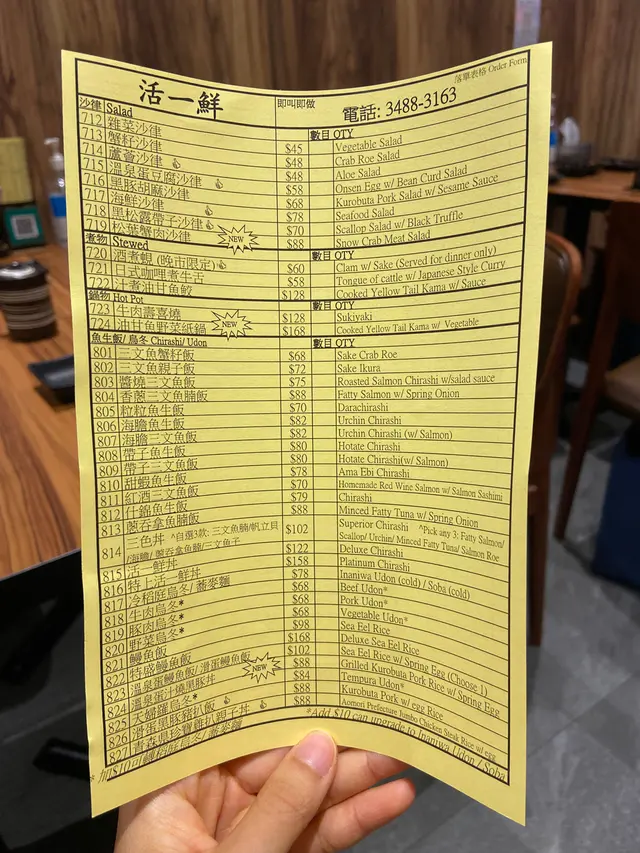 落單表格 Order Form
活一鮮 即叫即做 電話: 3488-3163
沙律 Salad 數目 QTY
712 雜菜沙律 $45 Vegetable Salad
713 蟹籽沙律 $48 Crab Roe Salad
714 蘆薈沙律 $48 Aloe Salad
715 溫泉蛋豆腐沙律 $58 Onsen Egg w/ Bean Curd Salad
716 黑豚胡麻沙律 $68 Kurobuta Pork Salad w/ Sesame Sauce
717 海鮮沙律 $78 Seafood Salad
718 黑松露帶子沙律 $70 Scallop Salad w/ Black Truffle
719 松葉蟹肉沙律 NEW $88 Snow Crab Meat Salad
煮物 Stewed 數目 QTY
720 酒煮蜆 (晚市限定) $60 Clam w/ Sake (Served for dinner only)
721 日式咖哩煮牛舌 $58 Tongue of cattle w/ Japanese Style Curry
722 汁煮油甘魚鮫 $128 Cooked Yellow Tail Kama w/ Sauce
鍋物 Hot Pot 數目 QTY
723 牛肉壽喜燒 $128 Sukiyaki
724 油甘魚野菜紙鍋 NEW $168 Cooked Yellow Tail Kama w/ Vegetable
魚生飯/ 烏冬 Chirashi/ Udon 數目 QTY
801 三文魚蟹籽飯 $68 Sake Crab Roe
802 三文魚親子飯 $72 Sake Ikura
803 醬燒三文魚飯 $75 Roasted Salmon Chirashi w/salad sauce
804 香蔥三文魚腩飯 $88 Fatty Salmon w/ Spring Onion
805 粒粒魚生飯 $70 Darachirashi
806 海膽魚生飯 $82 Urchin Chirashi
807 海膽三文魚飯 $82 Urchin Chirashi (w/ Salmon)
808 帶子魚生飯 $80 Hotate Chirashi
809 帶子三文魚飯 $80 Hotate Chirashi(w/ Salmon)
810 甜蝦魚生飯 $78 Ama Ebi Chirashi
811 紅酒三文魚飯 $70 Homemade Red Wine Salmon w/ Salmon Sashimi
812 什錦魚生飯 $79 Chirashi
813 蔥吞拿魚腩飯 $88 Minced Fatty Tuna w/ Spring Onion
814 三色丼 ^自選3款: 三文魚腩/帆立貝 $102 Superior Chirashi ^Pick any 3: Fatty Salmon/
/海膽/ 蔥吞拿魚腩/三文魚子 Scallop/ Urchin/ Minced Fatty Tuna/ Salmon Roe
815 活一鮮丼 $122 Deluxe Chirashi
816 特上活一鮮丼 $158 Platinum Chirashi
817 冷稻庭烏冬/ 蕎麥麵 $78 Inaniwa Udon (cold) / Soba (cold)
818 牛肉烏冬* $68 Beef Udon*
819 豚肉烏冬* $68 Pork Udon*
820 野菜烏冬* $68 Vegetable Udon*
821 鰻魚飯 $98 Sea Eel Rice
822 特盛鰻魚飯 $168 Deluxe Sea Eel Rice
823 溫泉蛋鰻魚飯/ 滑蛋鰻魚飯 $102 Sea Eel Rice w/ Spring Egg (Choose 1)
824 溫泉蛋汁燒黑豚丼 NEW $88 Grilled Kurobuta Pork Rice w/ Spring Egg
825 天婦羅烏冬* $84 Tempura Udon*
826 滑蛋黑豚豬扒飯 $88 Kurobuta Pork w/ egg Rice
827 青森縣珍寶雞扒親子丼 $88 Aomori Prefecture Jumbo Chicken Steak Rice w/ egg
* 加$10可轉稻庭烏冬/ 蕎麥麵 *Add $10 can upgrade to Inaniwa Udon / Soba